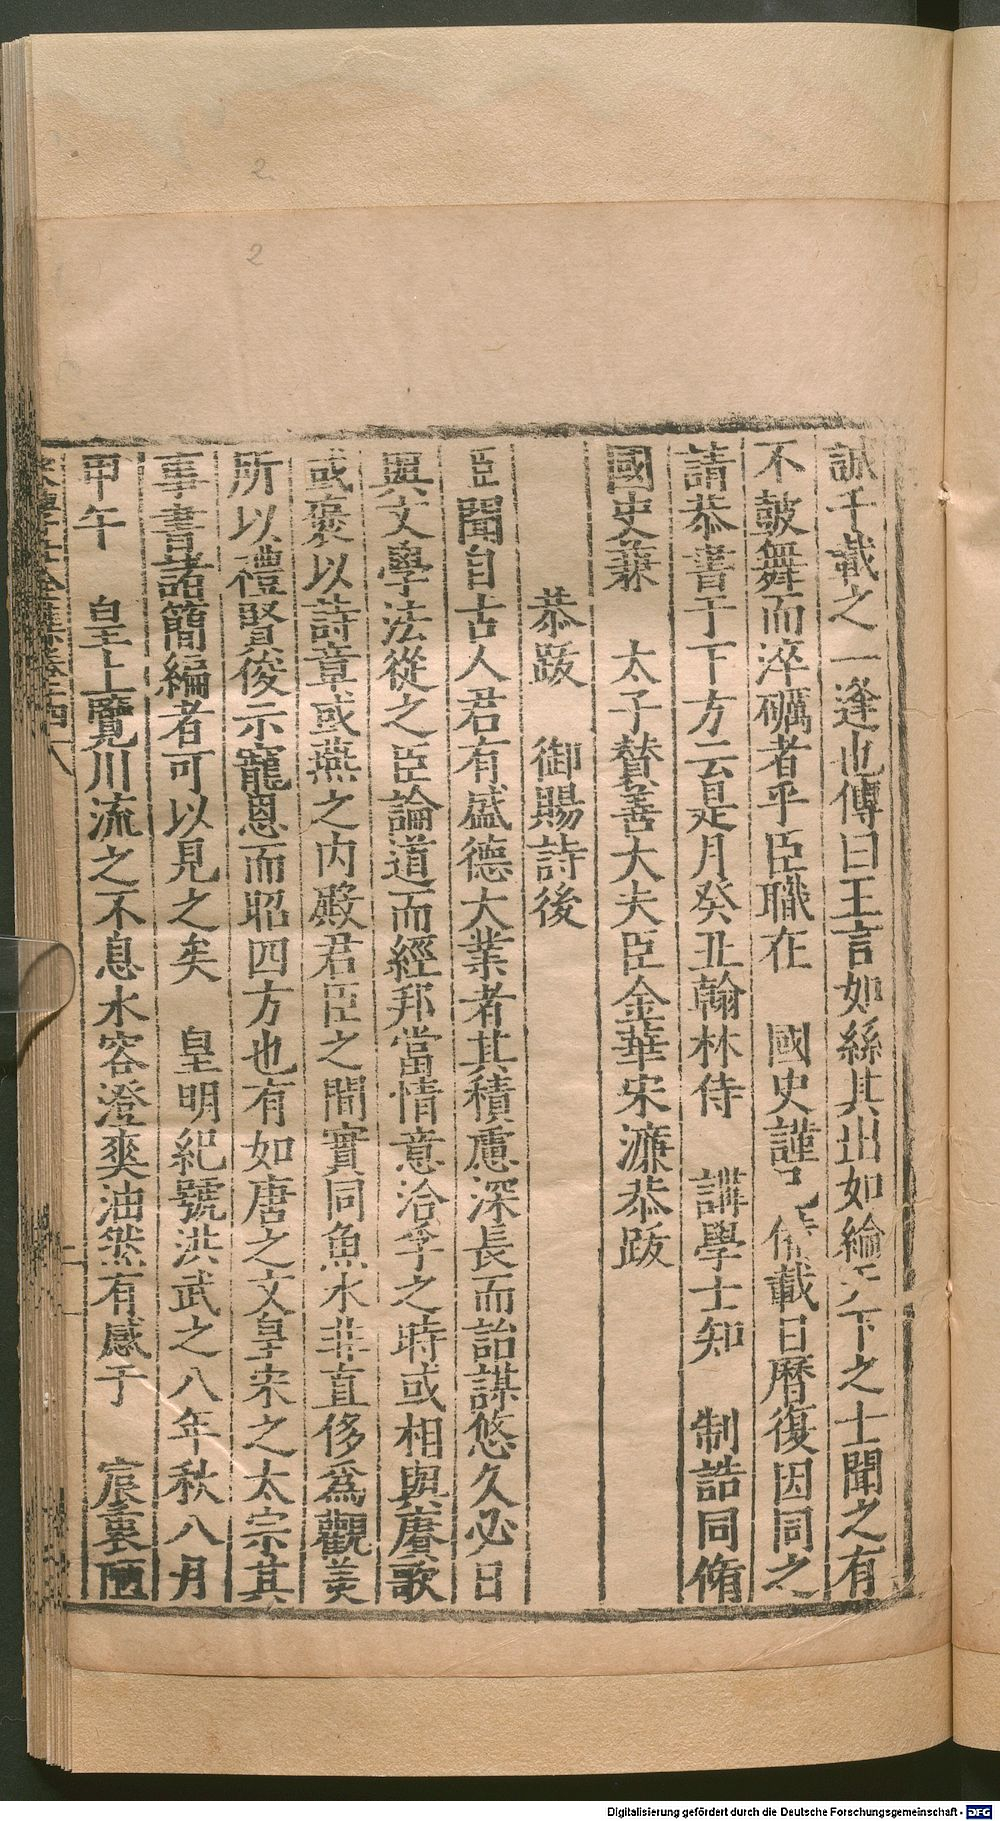 誠千載之一逢也傳曰王言如絲其出如綸天下之士聞之有
不皷舞而淬礪者乎臣職在　國史謹已備載日曆復因同之
請恭書于下方云是月癸丑翰林侍　講學士知　制誥同脩
國史兼　太子賛善大夫臣金華宋濂恭跋
恭跋　御賜詩後
臣聞自古人君有盛德大業者其積慮深長而詒謀悠久必日
與文學法從之臣論道而經邦當情意洽孚之時或相與賡歌
或褒以詩章或燕之内殿君臣之間實同魚水非直侈爲觀美
所以禮賢俊示寵恩而昭四方也有如唐之文皇宋之太宗其
事書諸簡編者可以見之矣　皇明紀號洪武之八年秋八月
甲午　皇上覽川流之不息水容澄爽油然有感于　宸衷陋
宋學士全集卷十四　八
2
2
Digitalisierung gefördert durch die Deutsche Forschungsgemeinschaft - DFG